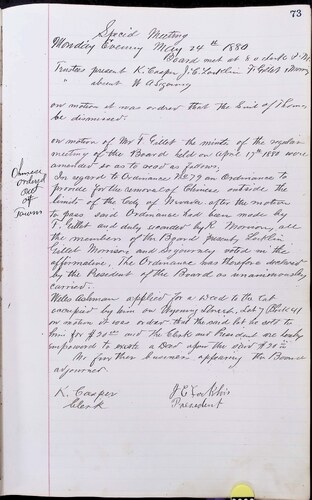 73
Special Meeting
Monday Evening May 24th 1880
Board met at 8 o'clock P.M.
Trustees present K. Casper J. E. Locklin F. Gillet & Morrison
" absent W A Sigourney
on motion it was ordered that the
be dismissed.
on motion of Mr F. Gillet the minute of the regular
meeting of the Board held on Apr. 17th 1880 were
amended so as to read as follows,
In regard to Ordinance No 79 an Ordinance to
provide for the removal of Chinese outside the
limits of the Town of Nevada after the motion
to pass said Ordinance had been made by
F. Gillet and duly seconded by K Morrison, all
the members of the Board present, Locklin
Gillet Morrison and Sigourney voted in the
affirmative. The Ordinance was therefore declared
by the President of the Board as unanimously
carried.
Chinese
ordered
out
of
Town
applied for a Deed to the Lot
occupied by him on Street, Lot 7 Block 41
on motion it was order that the said lot be sold to
him for $20 and the Clerk and President are hereby
empowered to make a Deed upon the
No further business appearing the Board
adjourned
K. Casper
Clerk
J E Locklin
President